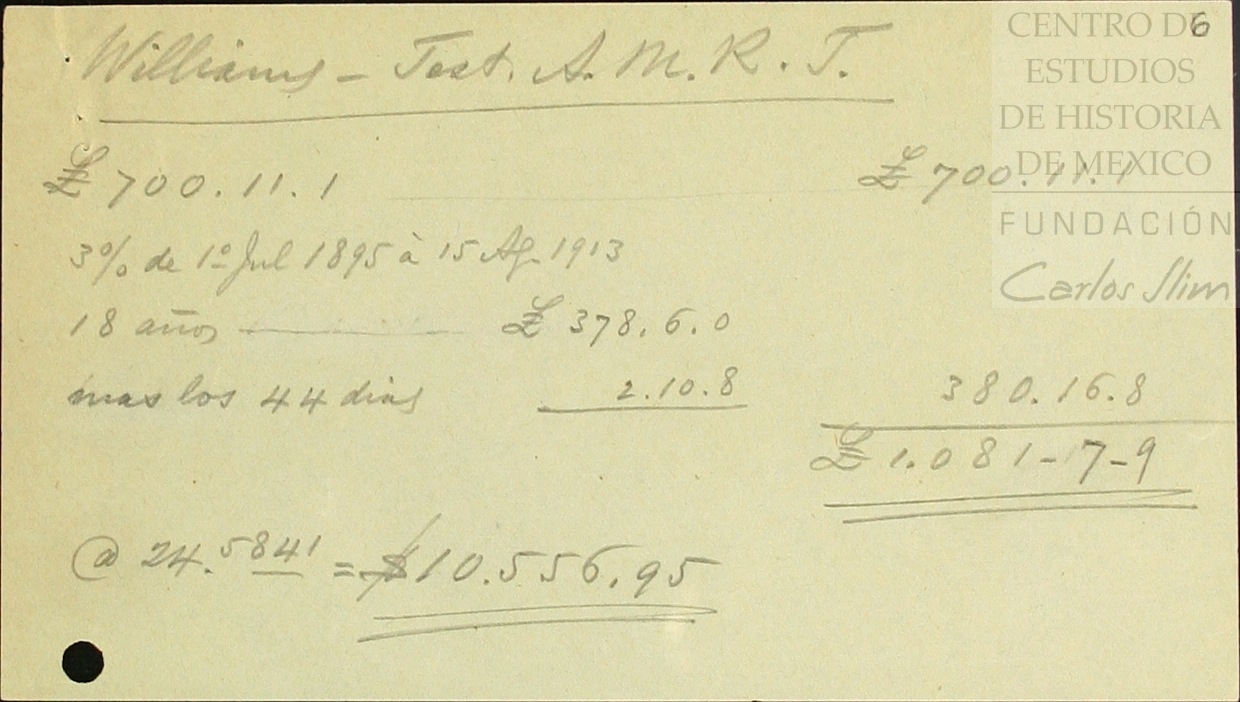 6
CENTRO DE
ESTUDIOS
DE HISTORIA
DE MEXICO
FUNDACIÓN
Carlos Slim
Williams – Test. A. M. R. T.
£ 700.11.1 £ 700.11.1
3% de 1º Jul 1895 à 15 Ag. 1913
18 años £ 378.6.0
mas los 44 dias 2.10.8 380.16.8
£ 1.081-7-9
@ 24.5841 = $10.556.95